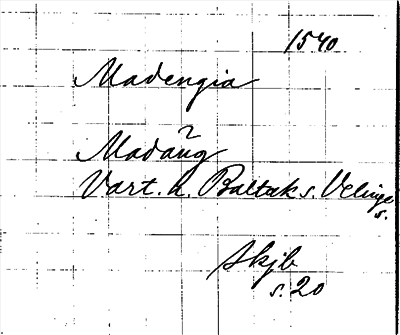 1540
Madengia
Madäng
Vart. h. Baltak s. Velinge
s.
Skjb
s. 20